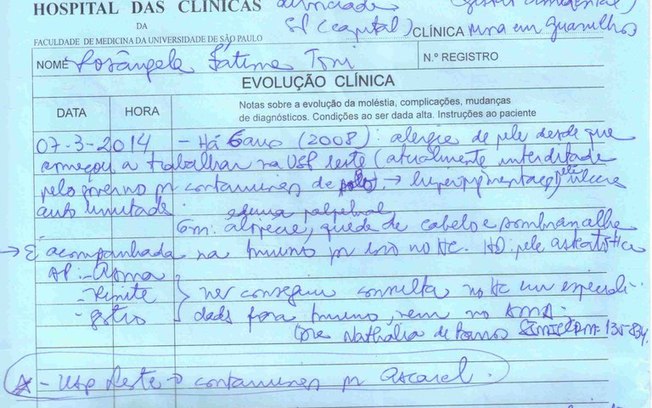 HOSPITAL DAS CLÍNICAS
DA
FACULDADE DE MEDICINA DA UNIVERSIDADE DE SÃO PAULO
SP (capital)
CLÍNICA mora em Guarulhos
NOME Rosângela Fátima Toni
N.º REGISTRO
EVOLUÇÃO CLÍNICA
DATA HORA Notas sobre a evolução da moléstia, complicações, mudanças
de diagnósticos. Condições ao ser dada alta. Instruções ao paciente
07-3-2014 - Há 6 anos (2008): alergia de pele desde que
começou a trabalhar na USP Leste (atualmente interditada
pelo governo p/ contaminação de solo. → hiperpigmentação, úlcera
auto limitada. edema palpebral
6m: alopecia, queda de cabelo e sombrancelha
→ É acompanhada na imuno p/ isso no HC. HD: pele
AP: - Asma
- Rinite
- gastro
não conseguiu consulta no HC em especiali-
dade fora imuno, nem no AMA.
Dra Nathália de
* - USP Leste → contaminação p/ Ascarel.